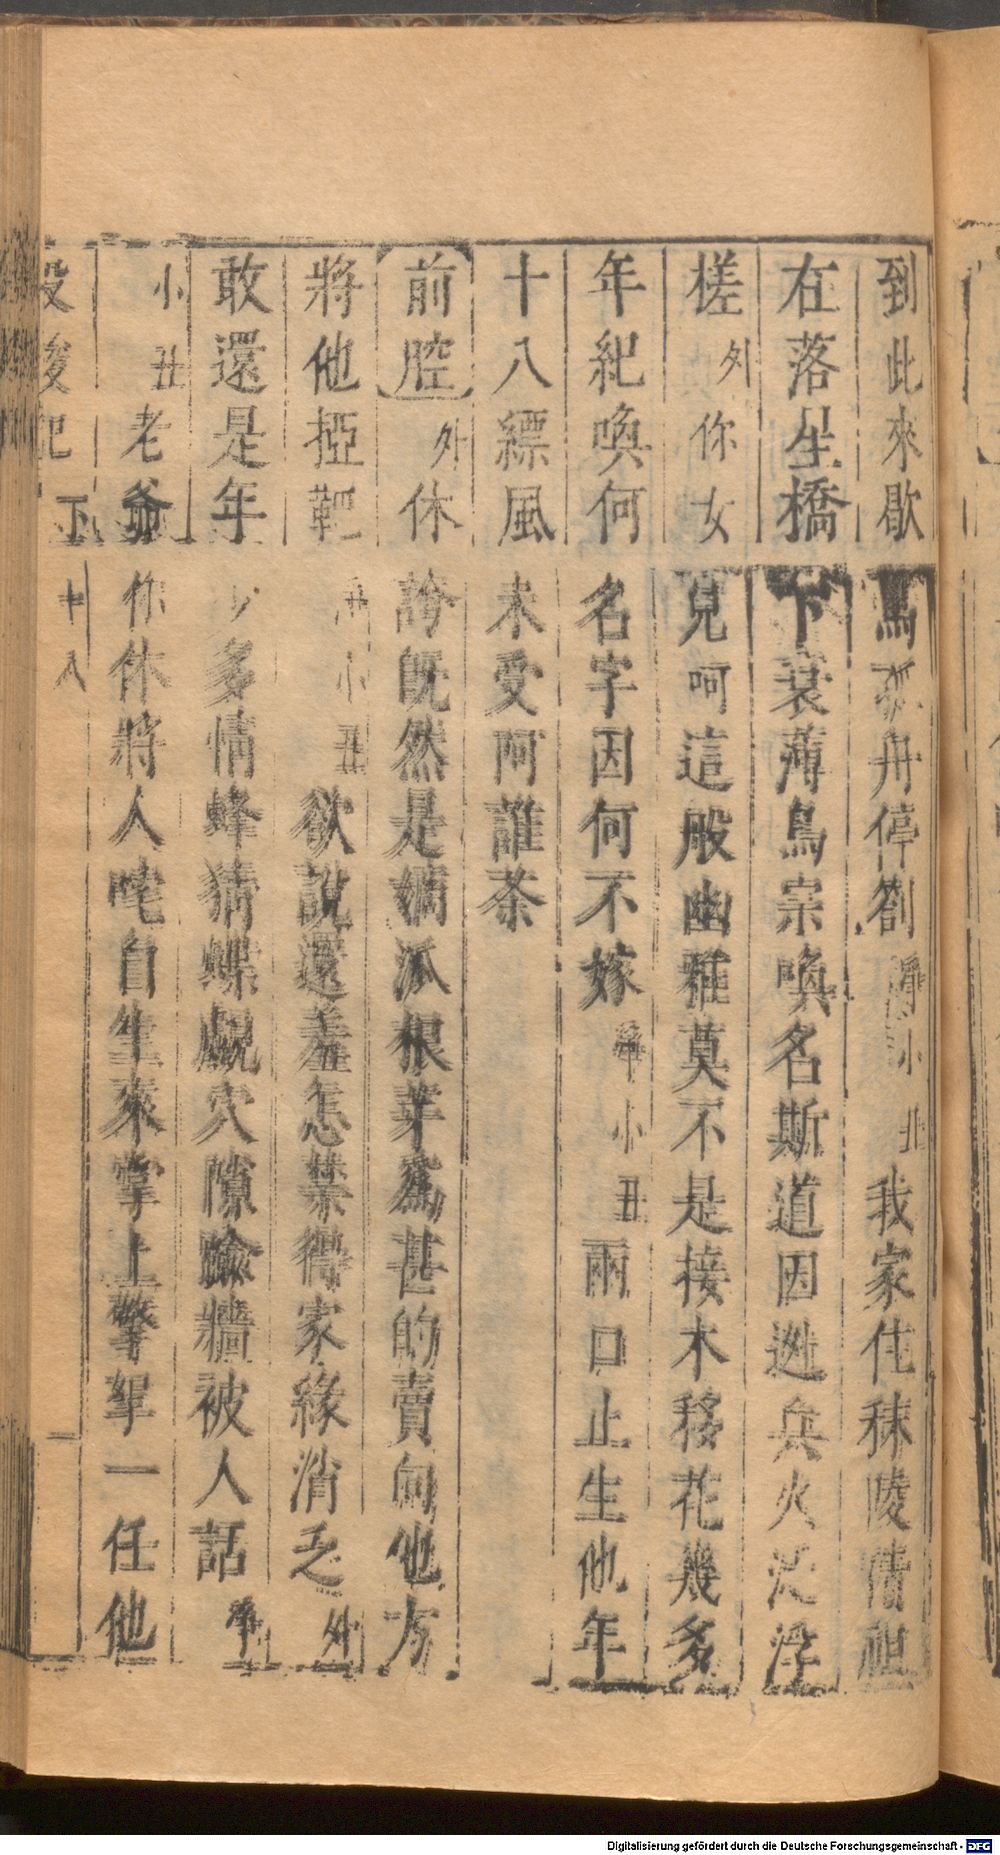 到此來歇馬孤舟停劄淨小丑我家住秣陵借祖
在落星橋下衰薄鳥宗喚名斯道因逃兵火泛浮
槎外你女兒呵這般幽雅莫不是接木移花幾多
年紀喚何名字因何不嫁淨小丑兩口止生他年
十八縹風未受阿誰茶
前腔外休誇既然是嫡派根芽爲甚的賣向他方
將他掗靶淨小丑欲說還羞怎禁得家緣消乏外
敢還是年少多情蜂猜蝶覷穴隙踰牆被人話淨
小丑老爺你休將人咤自生來掌上擎拏一任他
投梭記 下 十八
Digitalisierung gefördert durch die Deutsche Forschungsgemeinschaft - DFG